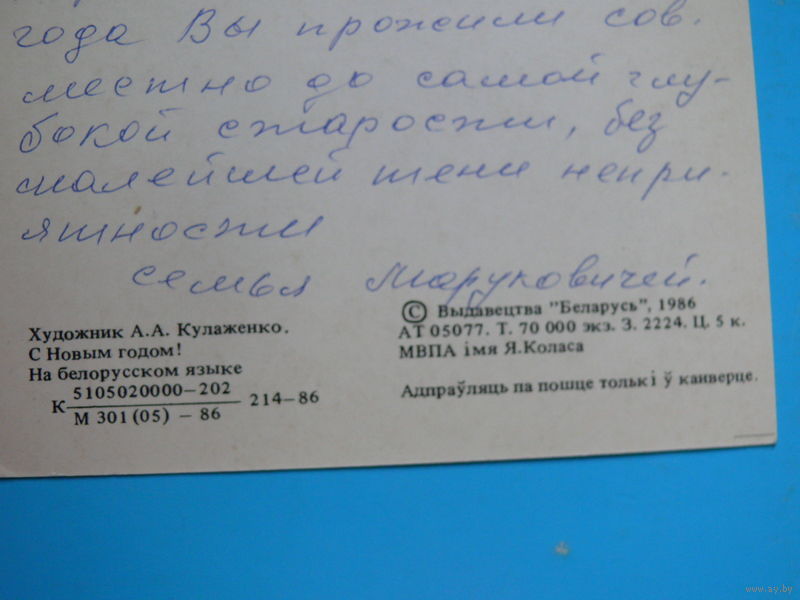 года Вы прожили сов.
местно до самой глу-
бокой старости, без
малейшей тени непри-
ятности
семья Маруковичей.
Художник А.А. Кулаженко.
С Новым годом!
На белорусском языке
К 5105020000–202
М 301(05) – 86 214–86
© Выдавецтва "Беларусь", 1986
АТ 05077. Т. 70 000 экз. З. 2224. Ц. 5 к.
МВПА імя Я.Коласа
Адпраўляць па пошце толькі ў канверце.
www.ay.by